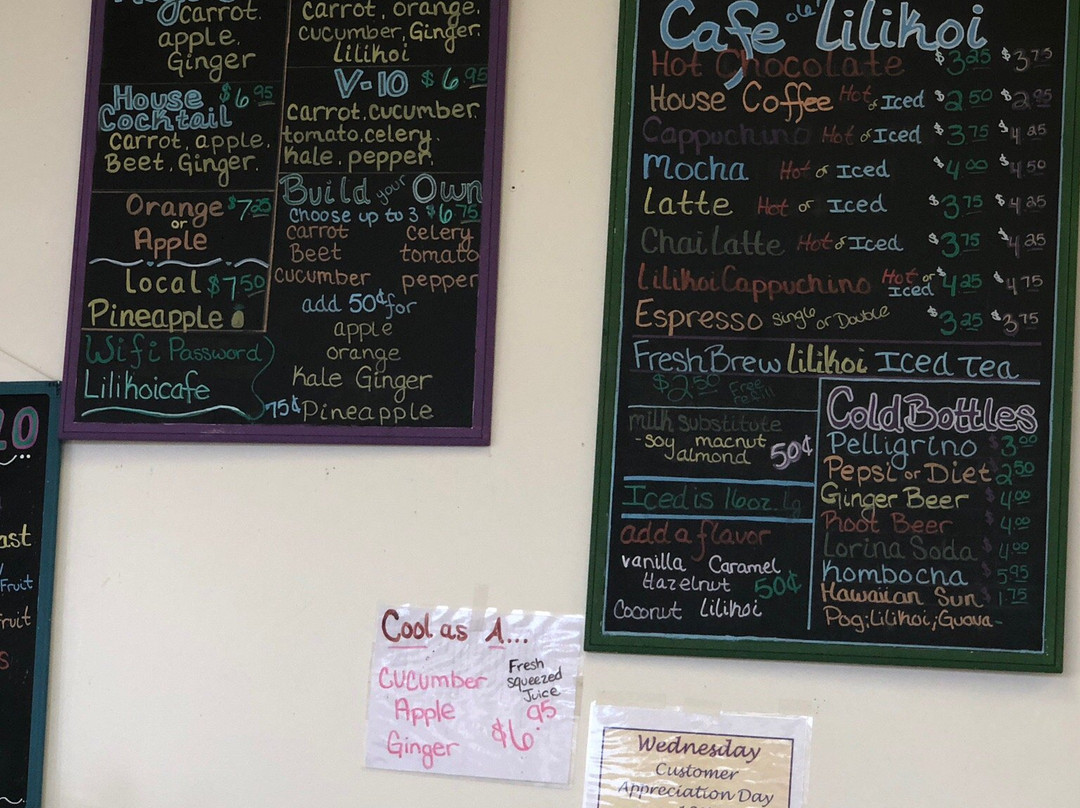 carrot.
apple.
Ginger
House $6.95
Cocktail
carrot, apple.
Beet, Ginger.
Orange $7.25
or
Apple
Local $7.50
Pineapple
Wifi Password
Lilikoicafe
carrot, orange.
cucumber, Ginger.
Lilikoi
V-10 $6.95
carrot.cucumber.
tomato.celery.
kale. pepper.
Build your Own
Choose up to 3 $6.75
carrot celery
Beet tomato
cucumber pepper
add 50¢ for
apple
orange
Kale Ginger
75¢ Pineapple
Cafe ole' Lilikoi
Hot Chocolate $3.25 $3.75
House Coffee Hot or Iced $2.50 $2.95
Cappuchino Hot or Iced $3.75 $4.25
Mocha Hot or Iced $4.00 $4.50
Latte Hot or Iced $3.75 $4.25
Chai Latte Hot or Iced $3.75 $4.25
Lilikoi Cappuchino Hot or Iced $4.25 $4.75
Espresso Single or Double $3.25 $3.75
Fresh Brew Lilikoi Iced Tea
$2.50 Free refill
milk substitute
-soy macnut
almond 50¢
Iced is 16oz. lg
add a flavor
vanilla Caramel
Hazelnut 50¢
Coconut Lilikoi
Cold Bottles
Pelligrino $3.00
Pepsi or Diet 2.50
Ginger Beer $4.00
Root Beer $4.00
Lorina Soda $4.00
Kombocha $5.95
Hawaiian Sun 1.75
Pog; Lilikoi; Guava-
ast
Fruit
fruit
s
Cool as A...
Cucumber
Apple
Ginger
Fresh
squeezed
Juice
$6.95
Wednesday
Customer
Appreciation Day